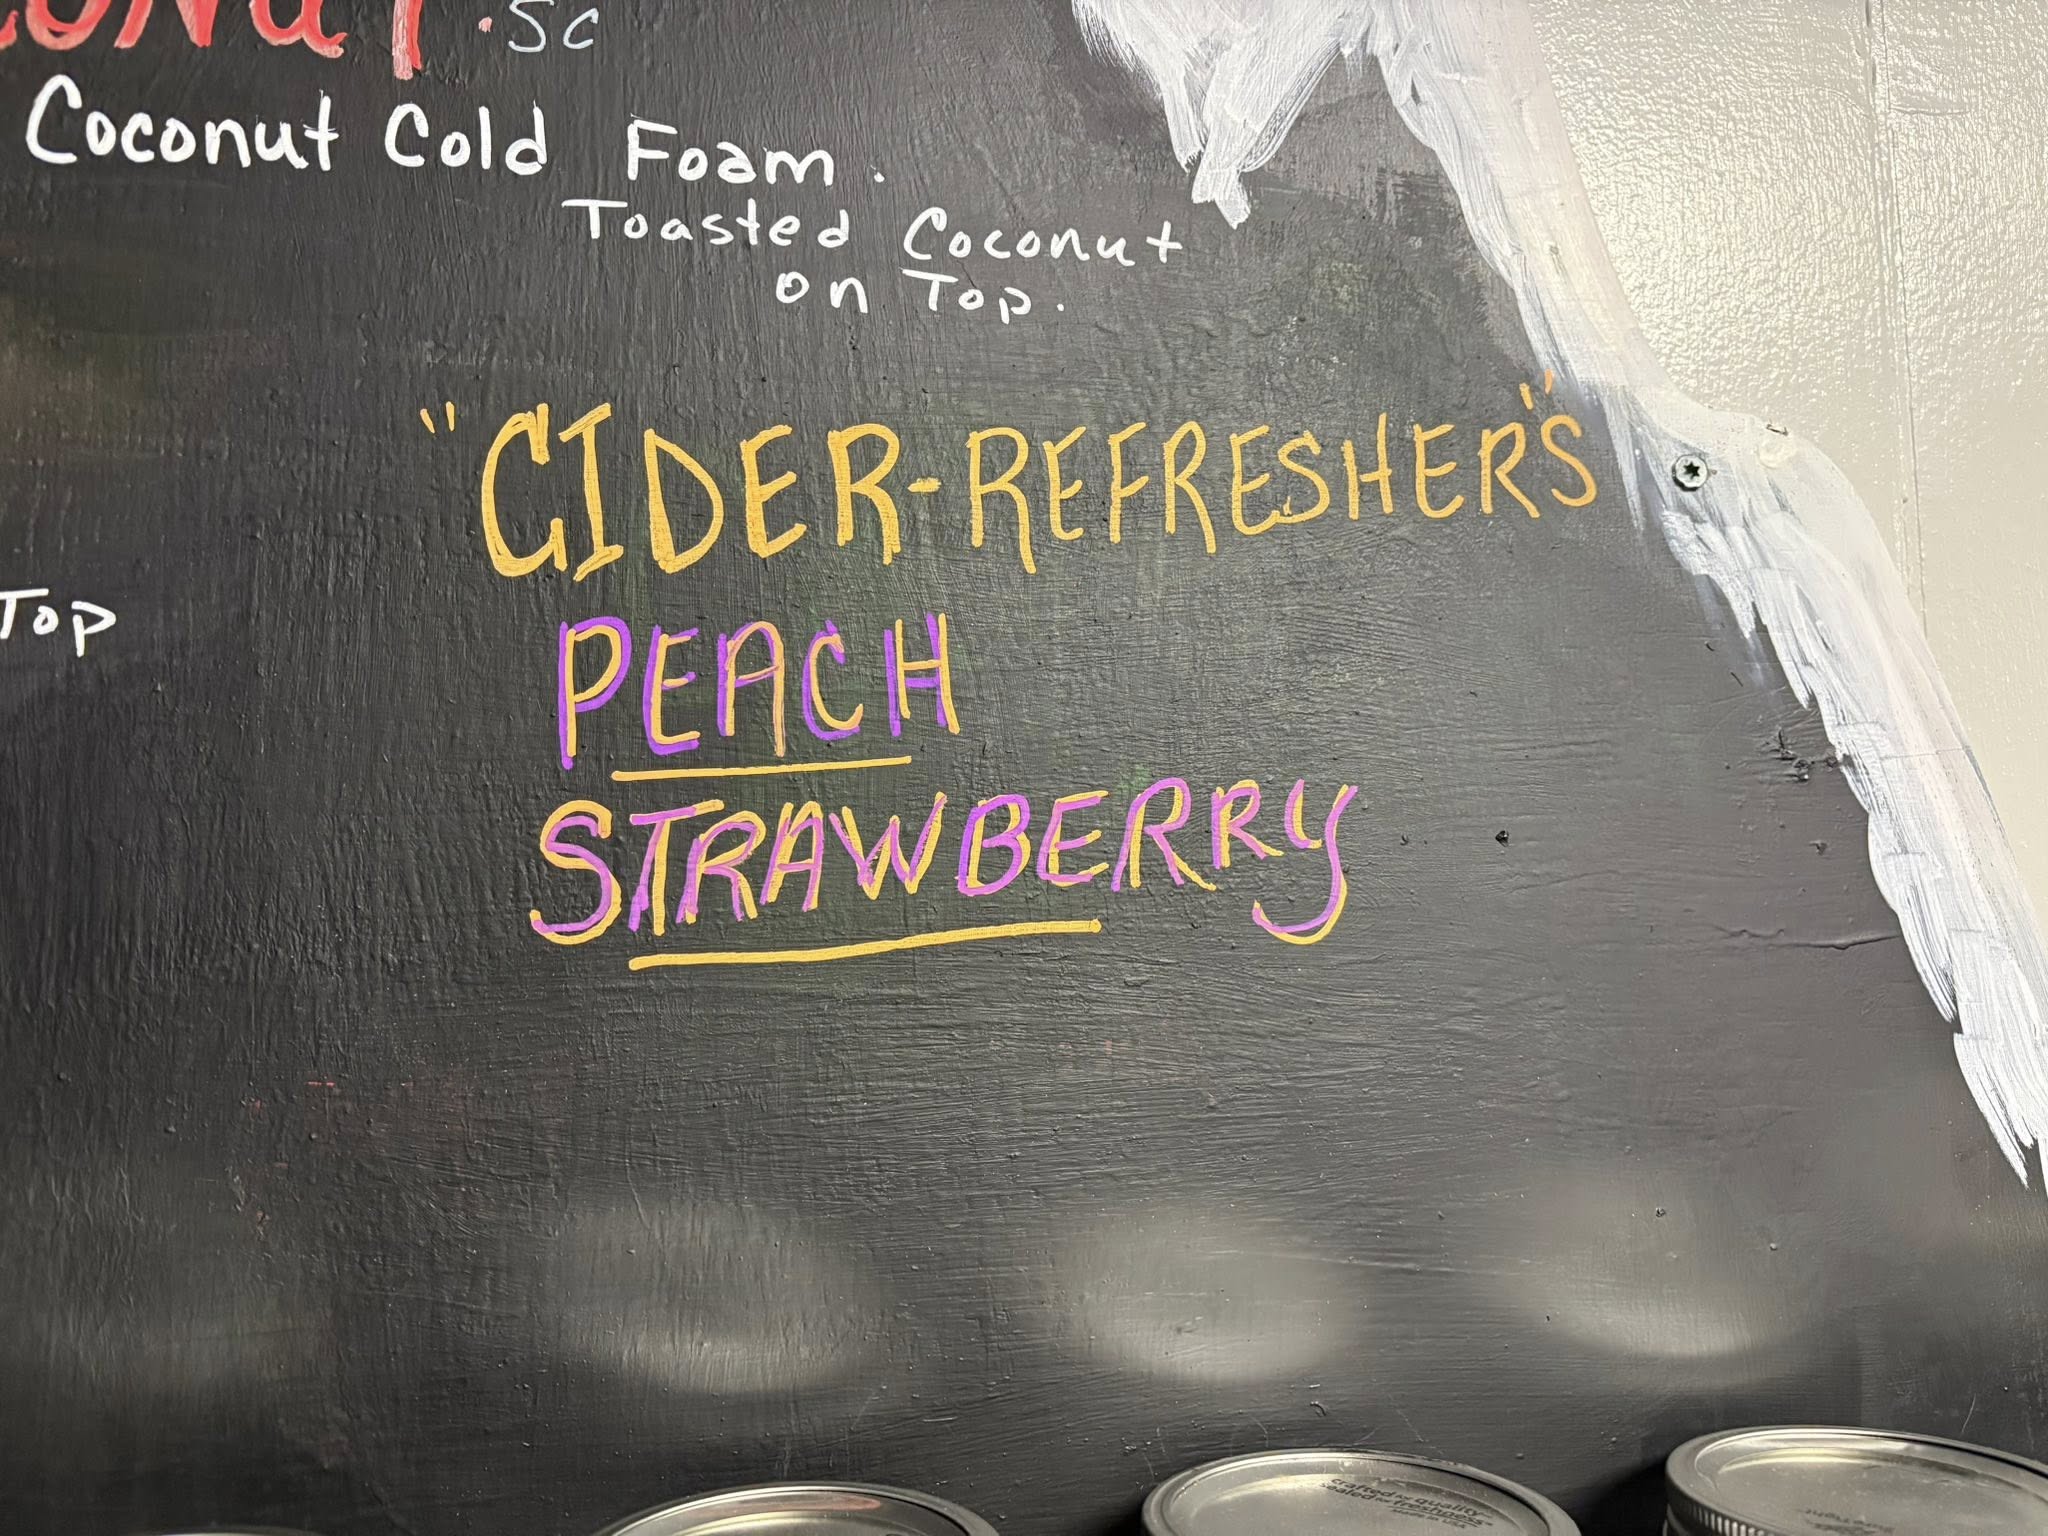 SC
Coconut Cold Foam.
Toasted Coconut
on Top.
"CIDER-REFRESHER'S"
Top
PEACH
STRAWBERRY
crafted for quality
sealed for freshness
Made in USA